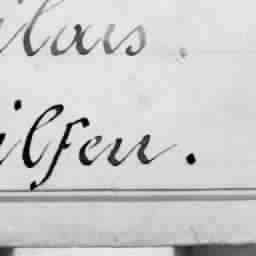 ilais.
ilfen.